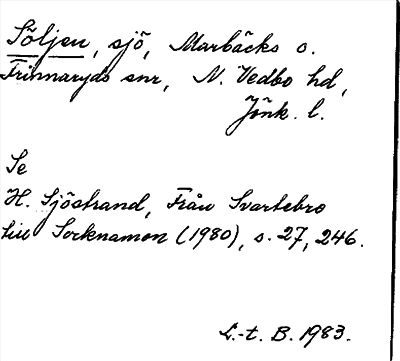 Söljen, sjö, Marbäcks o.
Frinnaryds snr, N. Vedbo hd,
Jönk. l.
Se
H. Sjöstrand, Från Svartebro
till Socknamon (1980), s. 27, 246.
L.-t. B. 1983.